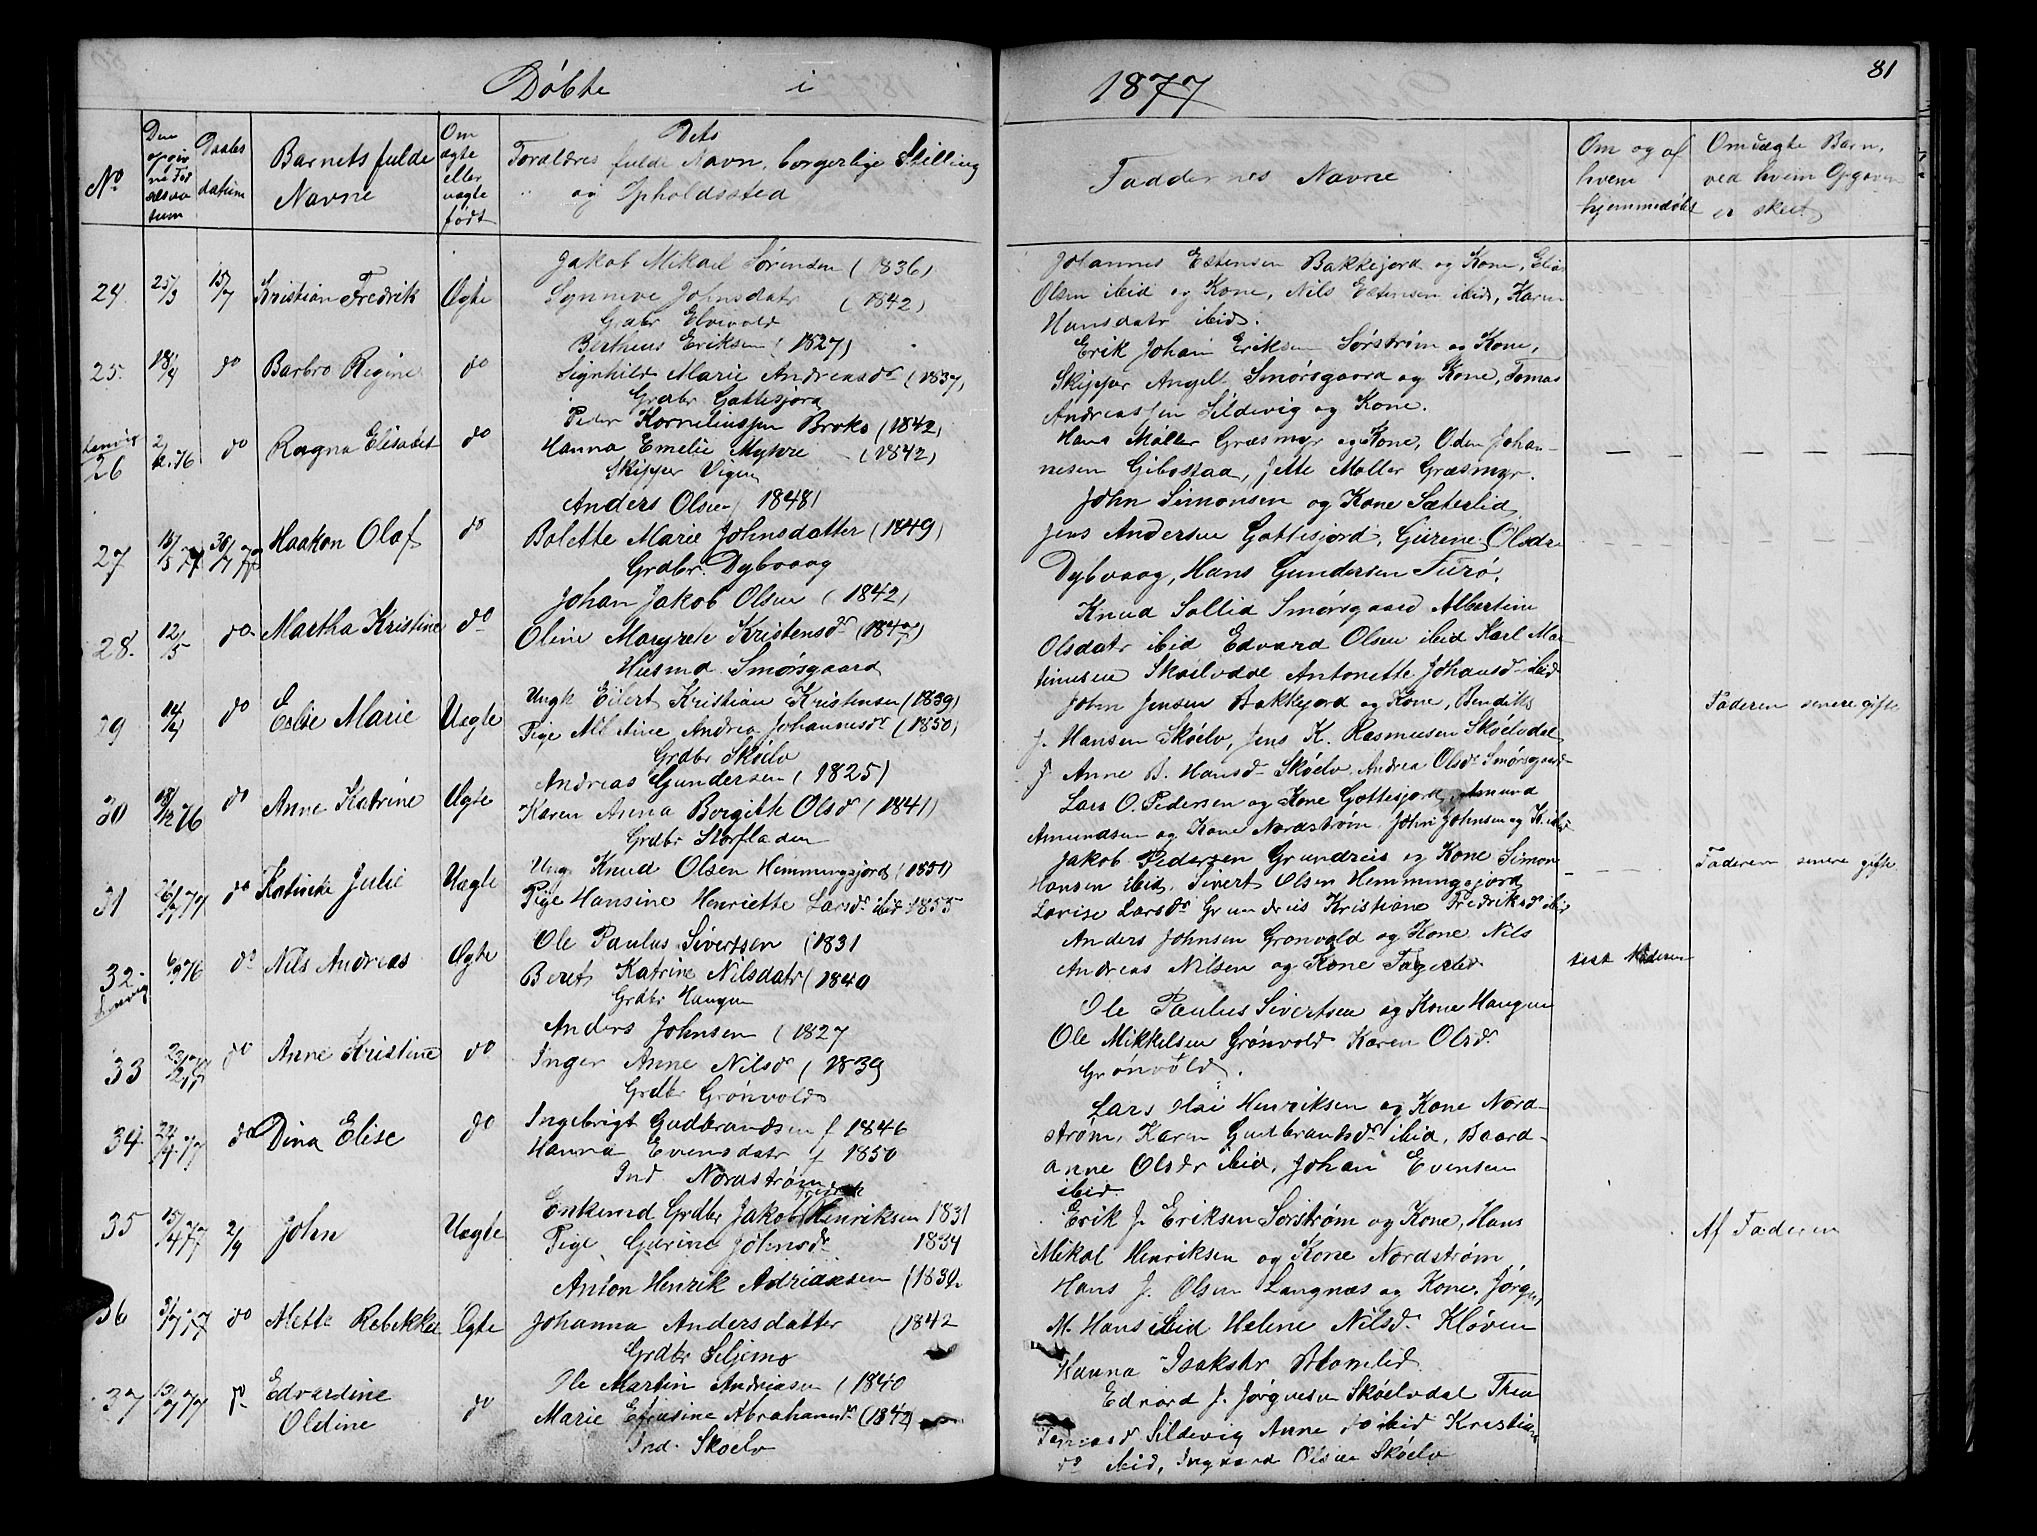 Døbte i
1877
81
No
Den opgivne Fødselsdatum
Daabsdatum
Barnets fulde Navne
Om ægte eller uægte født
Dets Forældres fulde Navn, borgerlige Stilling og Opholdssted
Faddernes Navne
Om og af hvem hjemmedøbt
Om uægte Barn, ved hvem Opgaven er skeet
24 25/3 15/7 Kristian Fredrik Ægte
Jakob Mikael Sørensen (1836)
Synneve Johnsdatr (1842)
Grdbr Elvevold
Johannes Estensen Bakkejord og Kone, Elias
Olsen ibid og Kone, Nils Estensen ibid, Karen
Hansdatr ibid.
25. 18/4 do Barbro Regine do
Bertheus Eriksen (1827)
Signhild Marie Andreasdr (1837)
Grdbr Gottesjord
Erik Johan Eriksen Sørstrøm og Kone,
Skipper Angell Smørsgaard og Kone, Tomas
Andreassen Sildevig og Kone.
26 do Ragna Elisabet do
Peder Korneliussen Broks (1842)
Hanna Emelie Myhre (1842)
Skipper Vigen
Hans Møller Græsmyr og Kone, Oden Johan-
nesen Gibostad, Jette Møller Græsmyr.
27 Haakon Olaf do
Anders Olsen (1848)
Bolette Marie Johnsdatter (1849)
Grdbr. Dybvaag
John Simonsen og Kone Sæterlid
Jens Andersen Gottesjord, Gurine Olsdr
Dybvaag, Hans Gundersen Turø.
28. 12/5 do Martha Kristine do
Johan Jakob Olsen (1842)
Oline Margrete Kristensdr
Husmd. Smørsgaard
Knud Sollid Smørsgaard Albertine
Olsdatr ibid Edvard Olsen ibid Karl Mar-
tinusen Skøelvdal Antonette Johansd ibid
29 do Elise Marie Uægte
Ungk Eilert Kristian Kristensen (1839)
Pige Albertine Andrea Johannesdr (1850)
Grdbr Skøelv
John Jensen Bakkejord og Kone, Bendikte
J. Hansen Skøelv, Jens K. Rasmussen Skøelvdal
Anne B. Hansd Skøelv, Andrea Olsdr Smørsgaard
Faderen senere gift
30 18/12 76 do Anne Katrine Uægte
Andreas Gundersen (1825)
Karen Anna Bergitte Olsdr (1841)
Grdbr Storfladen
Lars O. Pedersen og Kone Gottesjord, Amund
Amundsen og Kone Nordstrøm, John Johnsen og K. ibid
31 do Katinka Julie Uægte
Ung. Knud Olsen Hemmingsjord (1851)
Pige Hansine Henriette Larsdr ibid 1855
Jakob Pedersen Grundreis og Kone Simon
Hansen ibid. Sivert Olsen Hemmingsjord
Lovise Larsdr Grundreis Kristiane Fredriksd ibid
Faderen senere gift
32. 6/9 76 do Nils Andreas Ægte
Ole Paulus Sivertsen (1831
Beret Katrine Nilsdatr (1840
Grdbr Haugen
Anders Johnsen Grønvold og Kone Nils
Andreas Nilsen og Kone Fagerlid
33 do Anne Kristine do
Anders Johnsen (1827
Inger Anne Nilsdr (1839
Grdbr Grønvold
Ole Paulus Sivertsen og Kone Haugen
Ole Mikkelsen Grønvold Karen Olsdr.
Grønvold.
34. do Dina Elise do
Ingebrigt Gudbrandsen f 1846
Hanna Evensdatr f 1850
Ind. Nordstrøm
Lars Henriksen og Kone Nord-
strøm, Karen Gudbrandsdr ibid, Baard-
anne Olsdr ibid, Johan Evensen
ibid.
35 15/4 77 2/9 John Uægte
Enkemd Grdbr Jakob Fredrik Henriksen 1831
Pige Gurine Johnsdr 1834
Erik J. Eriksen Sørstrøm og Kone, Hans
Mikal Henriksen og Kone Nordstrøm
Af Faderen
36 31/7 77 do Mette Rebekka Ægte
Anton Henrik Adriansen (1830
Johanna Andersdatter (1842
Grdbr Siljemo
Hans J. Olsen Langnæs og Kone, Jørgen
M. Hans ibid Helene Nilsdr. Kløven
Hanna Isaksdr Blomlid
37 do Edvardine Oldine do
Ole Martin Andreasen (1840
Marie Efrasine Abrahamsdr (1842)
Ind. Skøelv
Edvard J. Jørgensen Skøelvdal Thea
Tomasd Sildevig Anne do ibid Kristiane
do ibid, Ingvard Olsen Skøelv